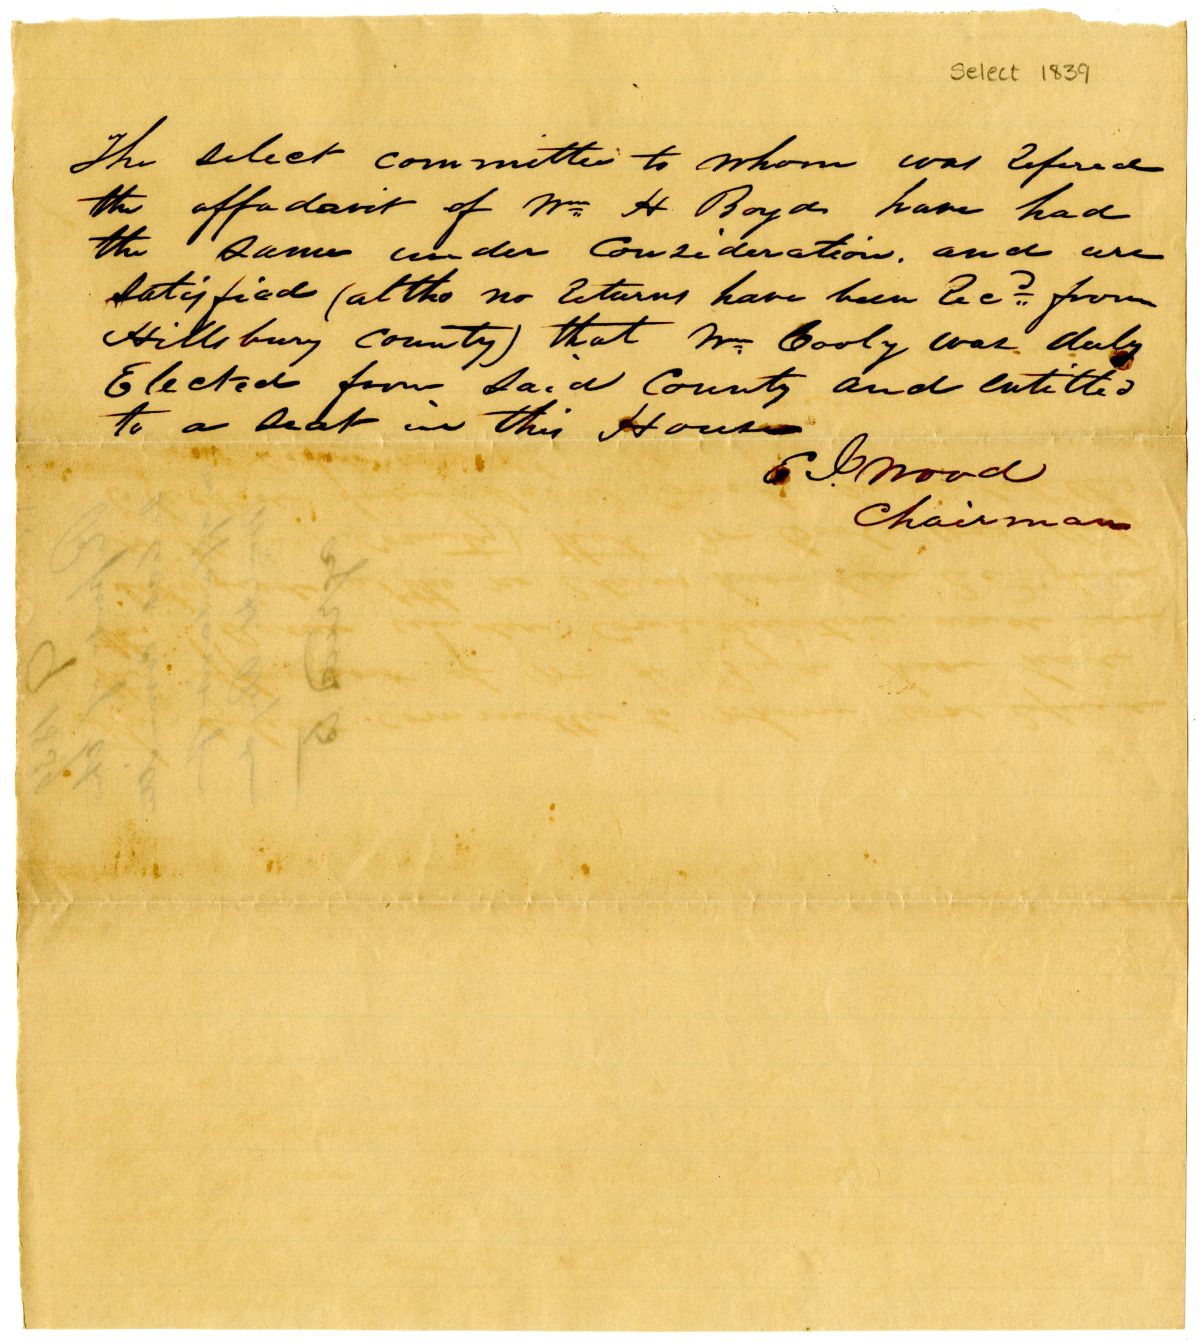 Select 1839
The select committee to whom was refered
the affadavit of Wm H Boyd have had
the same under Consideration. and are
satisfied (altho no returns have been Recd. from
Hillsbury county) that Wm Cooly was duly
Elected from said County and entitled
to a seat in this House
E I. Wood
Chairman